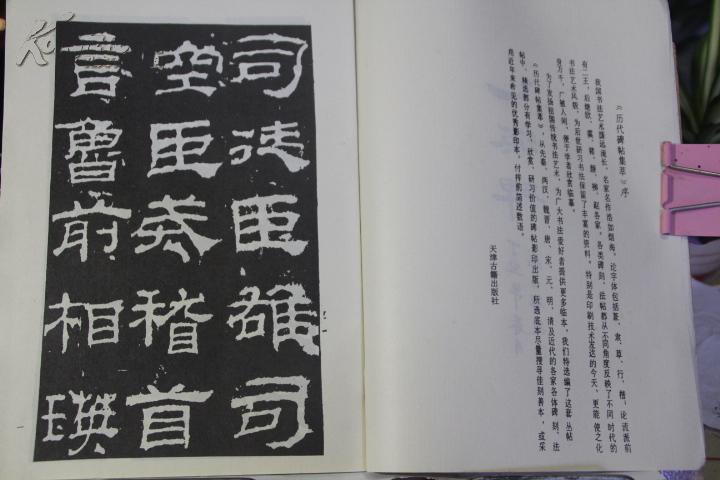 《历代碑帖集萃》序
我国书法艺术源远流长,名家名作浩如烟海。论字体包括篆、隶、草、行、楷,论流派前
有二王,后继欧、虞、褚、颜、柳、赵各家,各类碑刻、法帖都从不同角度反映了不同时代的
书法艺术风貌,为后世研习书法保留了丰富的资料。特别是印刷技术发达的今天,更能使之化
身万千,广被人间,便于学者欣赏临摹。
为了发扬祖国传统书法艺术,为广大书法爱好者提供更多临本,我们特选编了这套丛帖
《历代碑帖集萃》,从先秦、两汉、魏晋、唐、宋、元、明、清及近代的各家各体碑刻、法
帖中,精选部分有学习、欣赏、研习价值的碑帖影印出版,所选底本尽量搜寻佳刻善本,或采
用近年来希见的优秀影印本,付梓前简述数语。
天津古籍出版社
司徒臣雄司
空臣戒稽首
言魯前相瑛